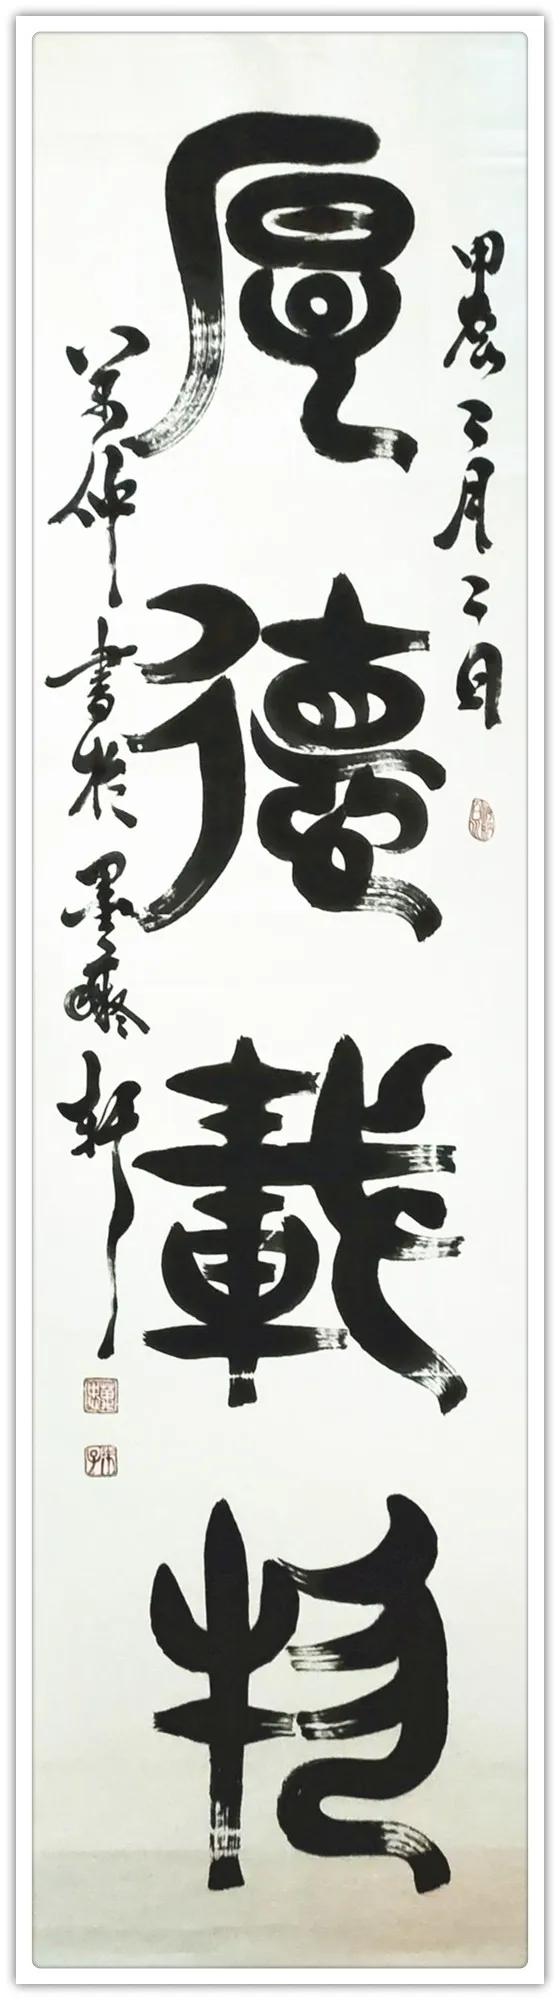 甲辰二月二日
厚德載物
仲書於墨軒